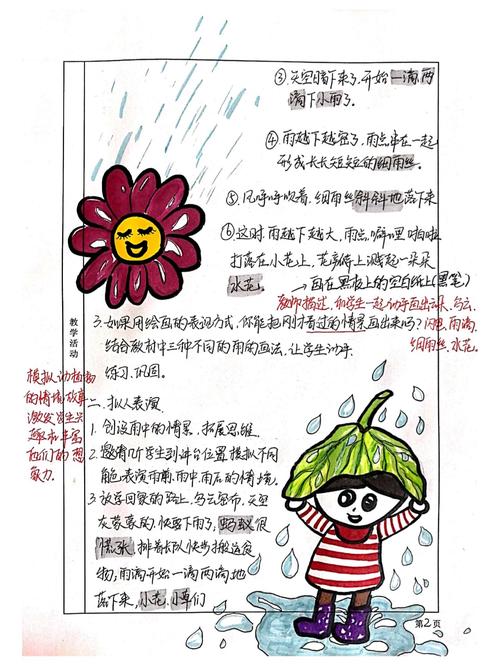 ③天空暗下来了,开始一滴两
滴下小雨了。
④雨越下越密了,雨点串在一起
形成长长短短的细雨丝。
⑤风呼呼吹着,细雨丝斜斜地落下来
⑥这时雨越下越大,雨点噼里啪啦
打落在小花上,花瓣上溅起一朵朵
水花。
→画在黑板上的空白纸上(黑笔)
教师描述,和学生一起动手画出
闪电,雨滴,
细雨丝,水花。
教学活动
3.如果用绘画的表现方式,你能把刚才看过的情景画出来吗?
结合教材中三种不同的雨的画法,让学生动手
练习、巩固。
模拟动植物
的情境故事
激发学生兴
趣和丰富
他们的想
象力.
二、拟人表演
1.创设雨中的情景,拓展思维.
2.邀请几个学生到讲台位置模拟不同
角色表演雨前,雨中,雨后的情境.
3.放学回家的路上,乌云密布,天空
灰蒙蒙的,快要下雨了,蚂蚁很
慌张,排着长队快步搬运食
物,雨滴开始一滴两滴地
落下来,小花、小草们
第2页